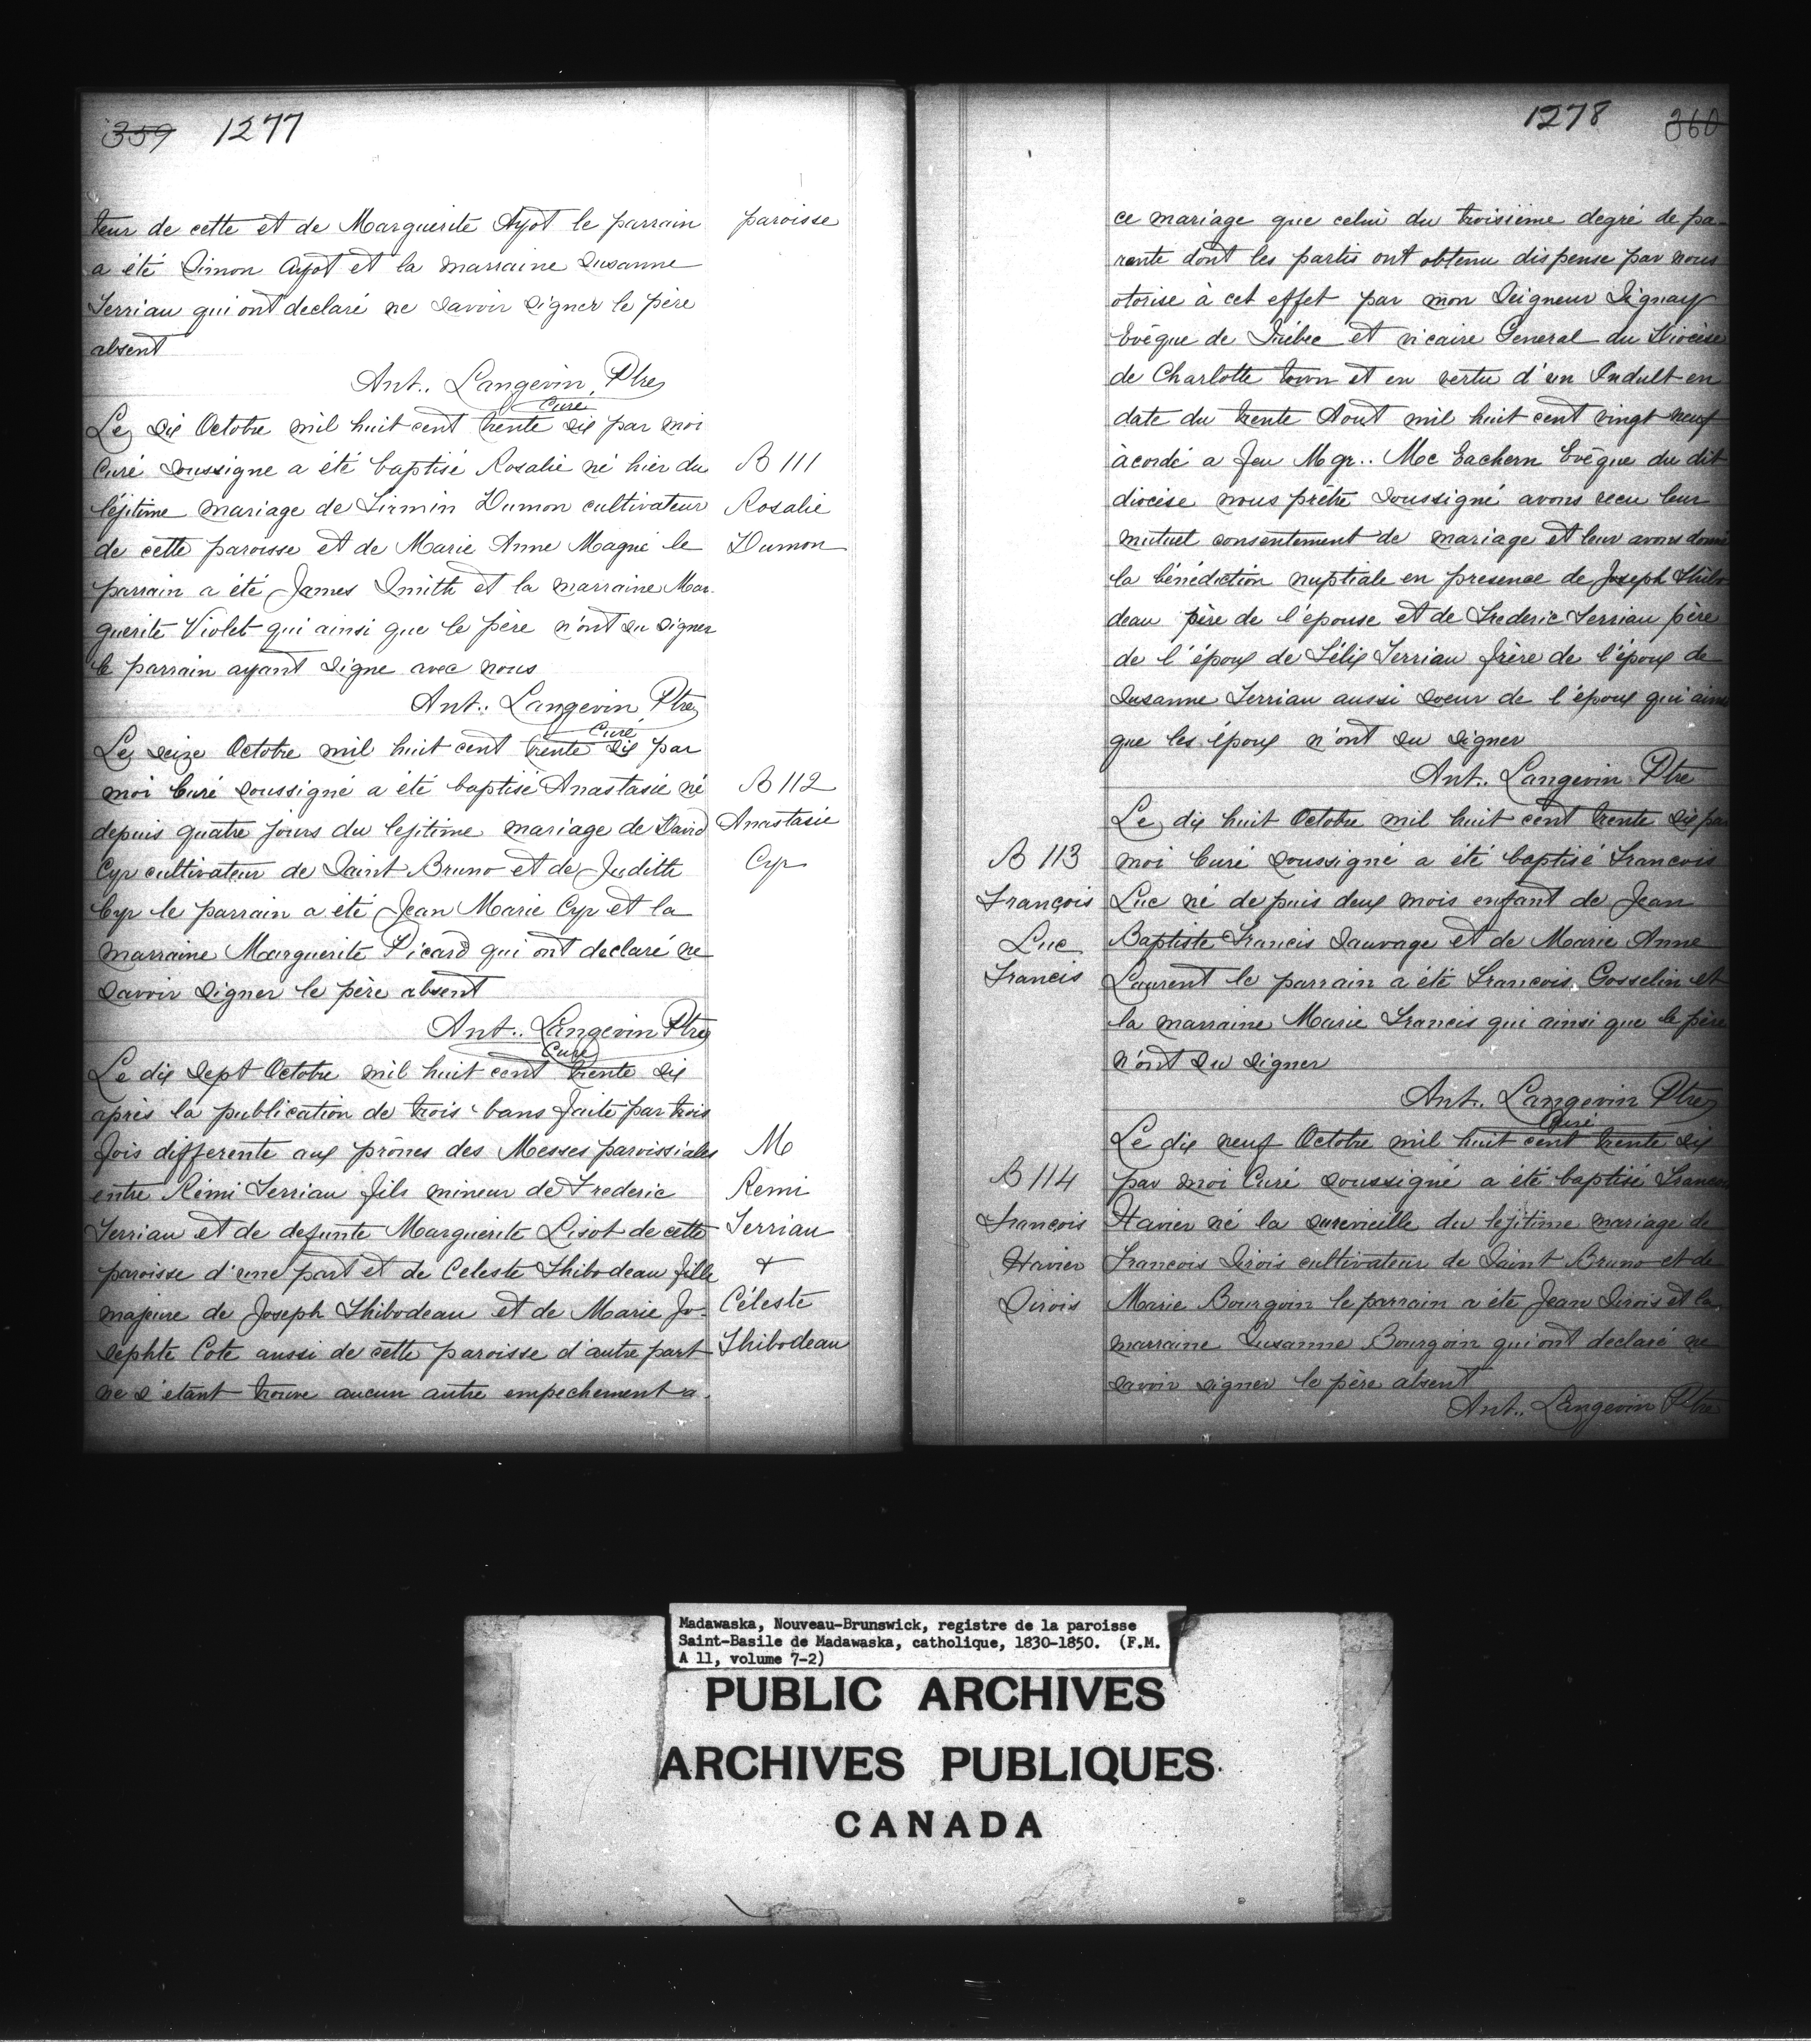 359 1277
teur de cette et de Marguerite Ayot le parrain paroisse
a été Simon Ayot et la marraine Susanne
Terriau qui ont declaré ne savoir signer le père
absent
Ant.. Langevin Ptre
Curé
Le six Octobre mil huit cent trente six par moi
Curé soussigne a été baptisé Rosalie né hier du
légitime mariage de Firmin Dumon cultivateur
de cette paroisse et de Marie Anne Magné le
parrain a été James Smith et la marraine Mar-
guerite Violet qui ainsi que le père n'ont su signer
le parrain ayant signe avec nous
B 111
Rosalie
Dumon
Ant.. Langevin Ptre
Curé
Le seize Octobre mil huit cent trente six par
moi Curé soussigné a été baptisé Anastasie né
depuis quatre jours du lejitime mariage de David
Cyr cultivateur de Saint Bruno et de Judith
Cyr le parrain a été Jean Marie Cyr et la
marraine Marguerite Picard qui ont declaré ne
savoir signer le père absent
B 112
Anastasie
Cyr
Ant.. Langevin Ptre
Curé
Le dix sept Octobre mil huit cent trente six
après la publication de trois bans faite par trois
fois differente aux prônes des Messes paroissiales
entre Rémi Terriau fils mineur de Frederic
Terriau et de defunte Marguerite Lisot de cette
paroisse d'une part et de Celeste Thibodeau fille
majeure de Joseph Thibodeau et de Marie Jo-
sephte Cote aussi de cette paroisse d'autre part
ne s'étant trouve aucun autre empechement a
M
Remi
Terriau
+
Céleste
Thibodeau
1278 360
ce mariage que celui du troisième degré de pa-
rente dont les partis ont obtenu dispense par nous
otorise à cet effet par mon Seigneur Signay
Evêque de Québec et vicaire General du Diocèse
de Charlotte town et en vertu d'un Indult en
date du trente Aout mil huit cent vingt neuf
àcordé a feu Mgr.. Mc Eachern Evêque du dit
diocèse nous prêtre soussigné avons recu leur
mutuel consentement de mariage et leur avons donné
la bénédiction nuptiale en presence de Joseph Thibo
deau père de l'épouse et de Frederic Terriau père
de l'époux de Félix Terriau frère de l'époux de
Susanne Terriau aussi soeur de l'époux qui ainsi
que les époux n'ont su signer
Ant.. Langevin Ptre
Le dix huit Octobre mil huit cent trente six par
moi Curé soussigné a été baptisé Francois
Luc né de puis deux mois enfant de Jean
Baptiste Francis Sauvage et de Marie Anne
Laurent le parrain a été Francois Gosselin et
la marraine Marie Francis qui ainsi que le père
n'ont su signer
B 113
François
Luc
Francis
Ant.. Langevin Ptre
Curé
Le dix neuf Octobre mil huit cent trente six
par moi Curé soussigné a été baptisé Francois
Xavier né la surevielle du lejitime mariage de
Francois Sirois cultivateur de Saint Bruno et de
Marie Bourgoin le parrain a été Jean Sirois et la
marraine Susanne Bourgoin qui ont declaré ne
savoir signer le père absent
B 114
François
Xavier
Sirois
Ant.. Langevin Ptre
Madawaska, Nouveau-Brunswick, registre de la paroisse
Saint-Basile de Madawaska, catholique, 1830-1850. (F.M.
A 11, volume 7-2)
PUBLIC ARCHIVES
ARCHIVES PUBLIQUES
CANADA